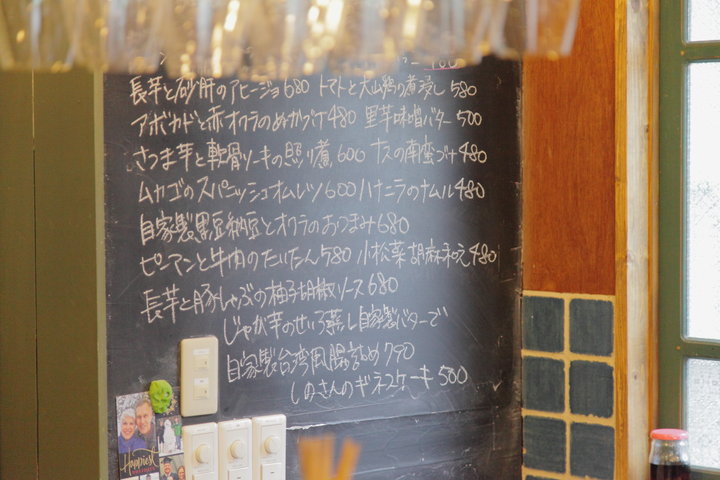 長芋と砂肝のアヒージョ680 トマトと大山鶏の煮浸し580
アボカドと赤オクラのぬか漬ケ480 里芋味噌バター500
さつま芋と軟骨ソーキの照り煮600 ナスの南蛮漬ケ480
ムカゴのスパニッシュオムレツ600 ハナニラのナムル480
自家製黒豆納豆とオクラのおつまみ680
ピーマンと牛肉の 580 小松菜胡麻和え480
長芋と豚しゃぶの柚子胡椒ソース680
じゃが芋のせいろ蒸し自家製バターで
自家製台湾風腸詰め790
しのさんのギネスケーキ500
Happiest